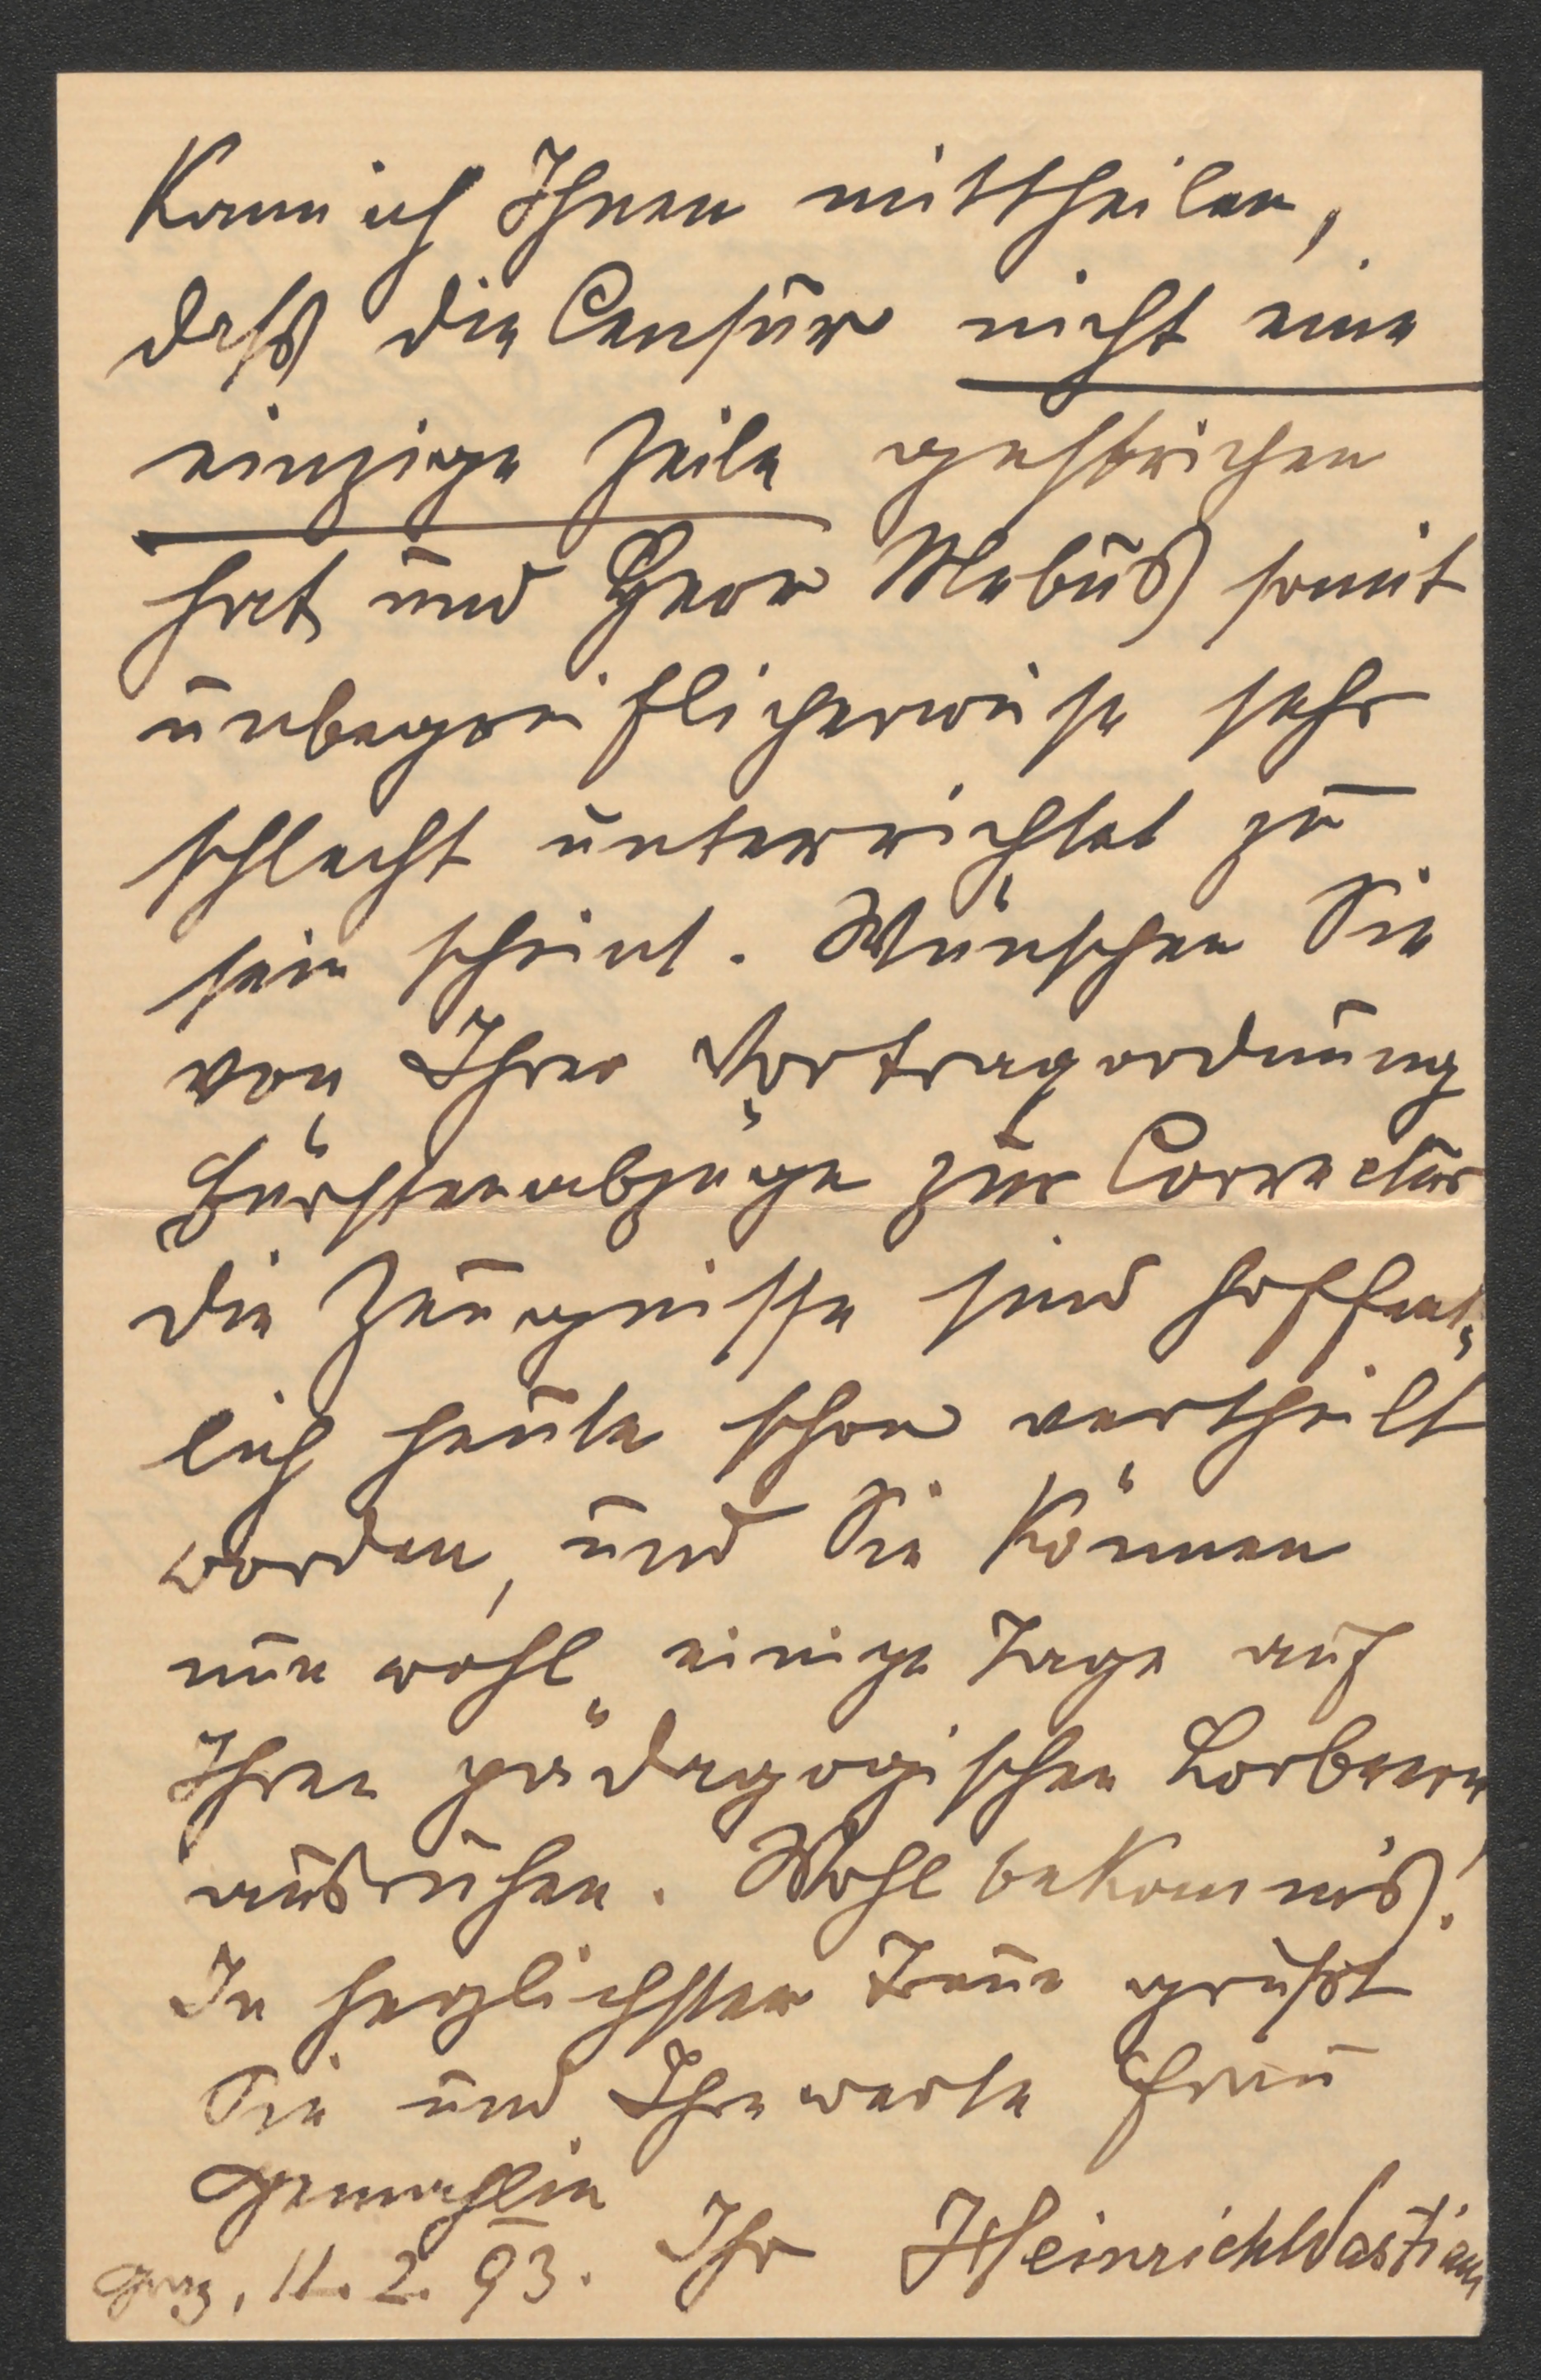 kann ich Ihnen mittheilen,
daß die Censur nicht eine
einzige Zeile gestrichen
hat und Herr Mebus somit
unbegreiflicherweise sehr
schlecht unterrichtet zu
sein scheint. Wünschen Sie
von Ihrer Vortragordnung
Bürstenabzüge zur Correctur
Die Zeugnisse sind hoffent„
lich heute schon vertheilt
worden, und Sie können
nun wohl einige Tage auf
Ihren pädagogischen Lorbeern
ausruhen. Wohl bekomm's!
In herzlichster Treue grüßt
Sie und Ihre werte Frau
Gemahlin
Ihr Heinrich Wastian
Graz, 11. 2. 93.